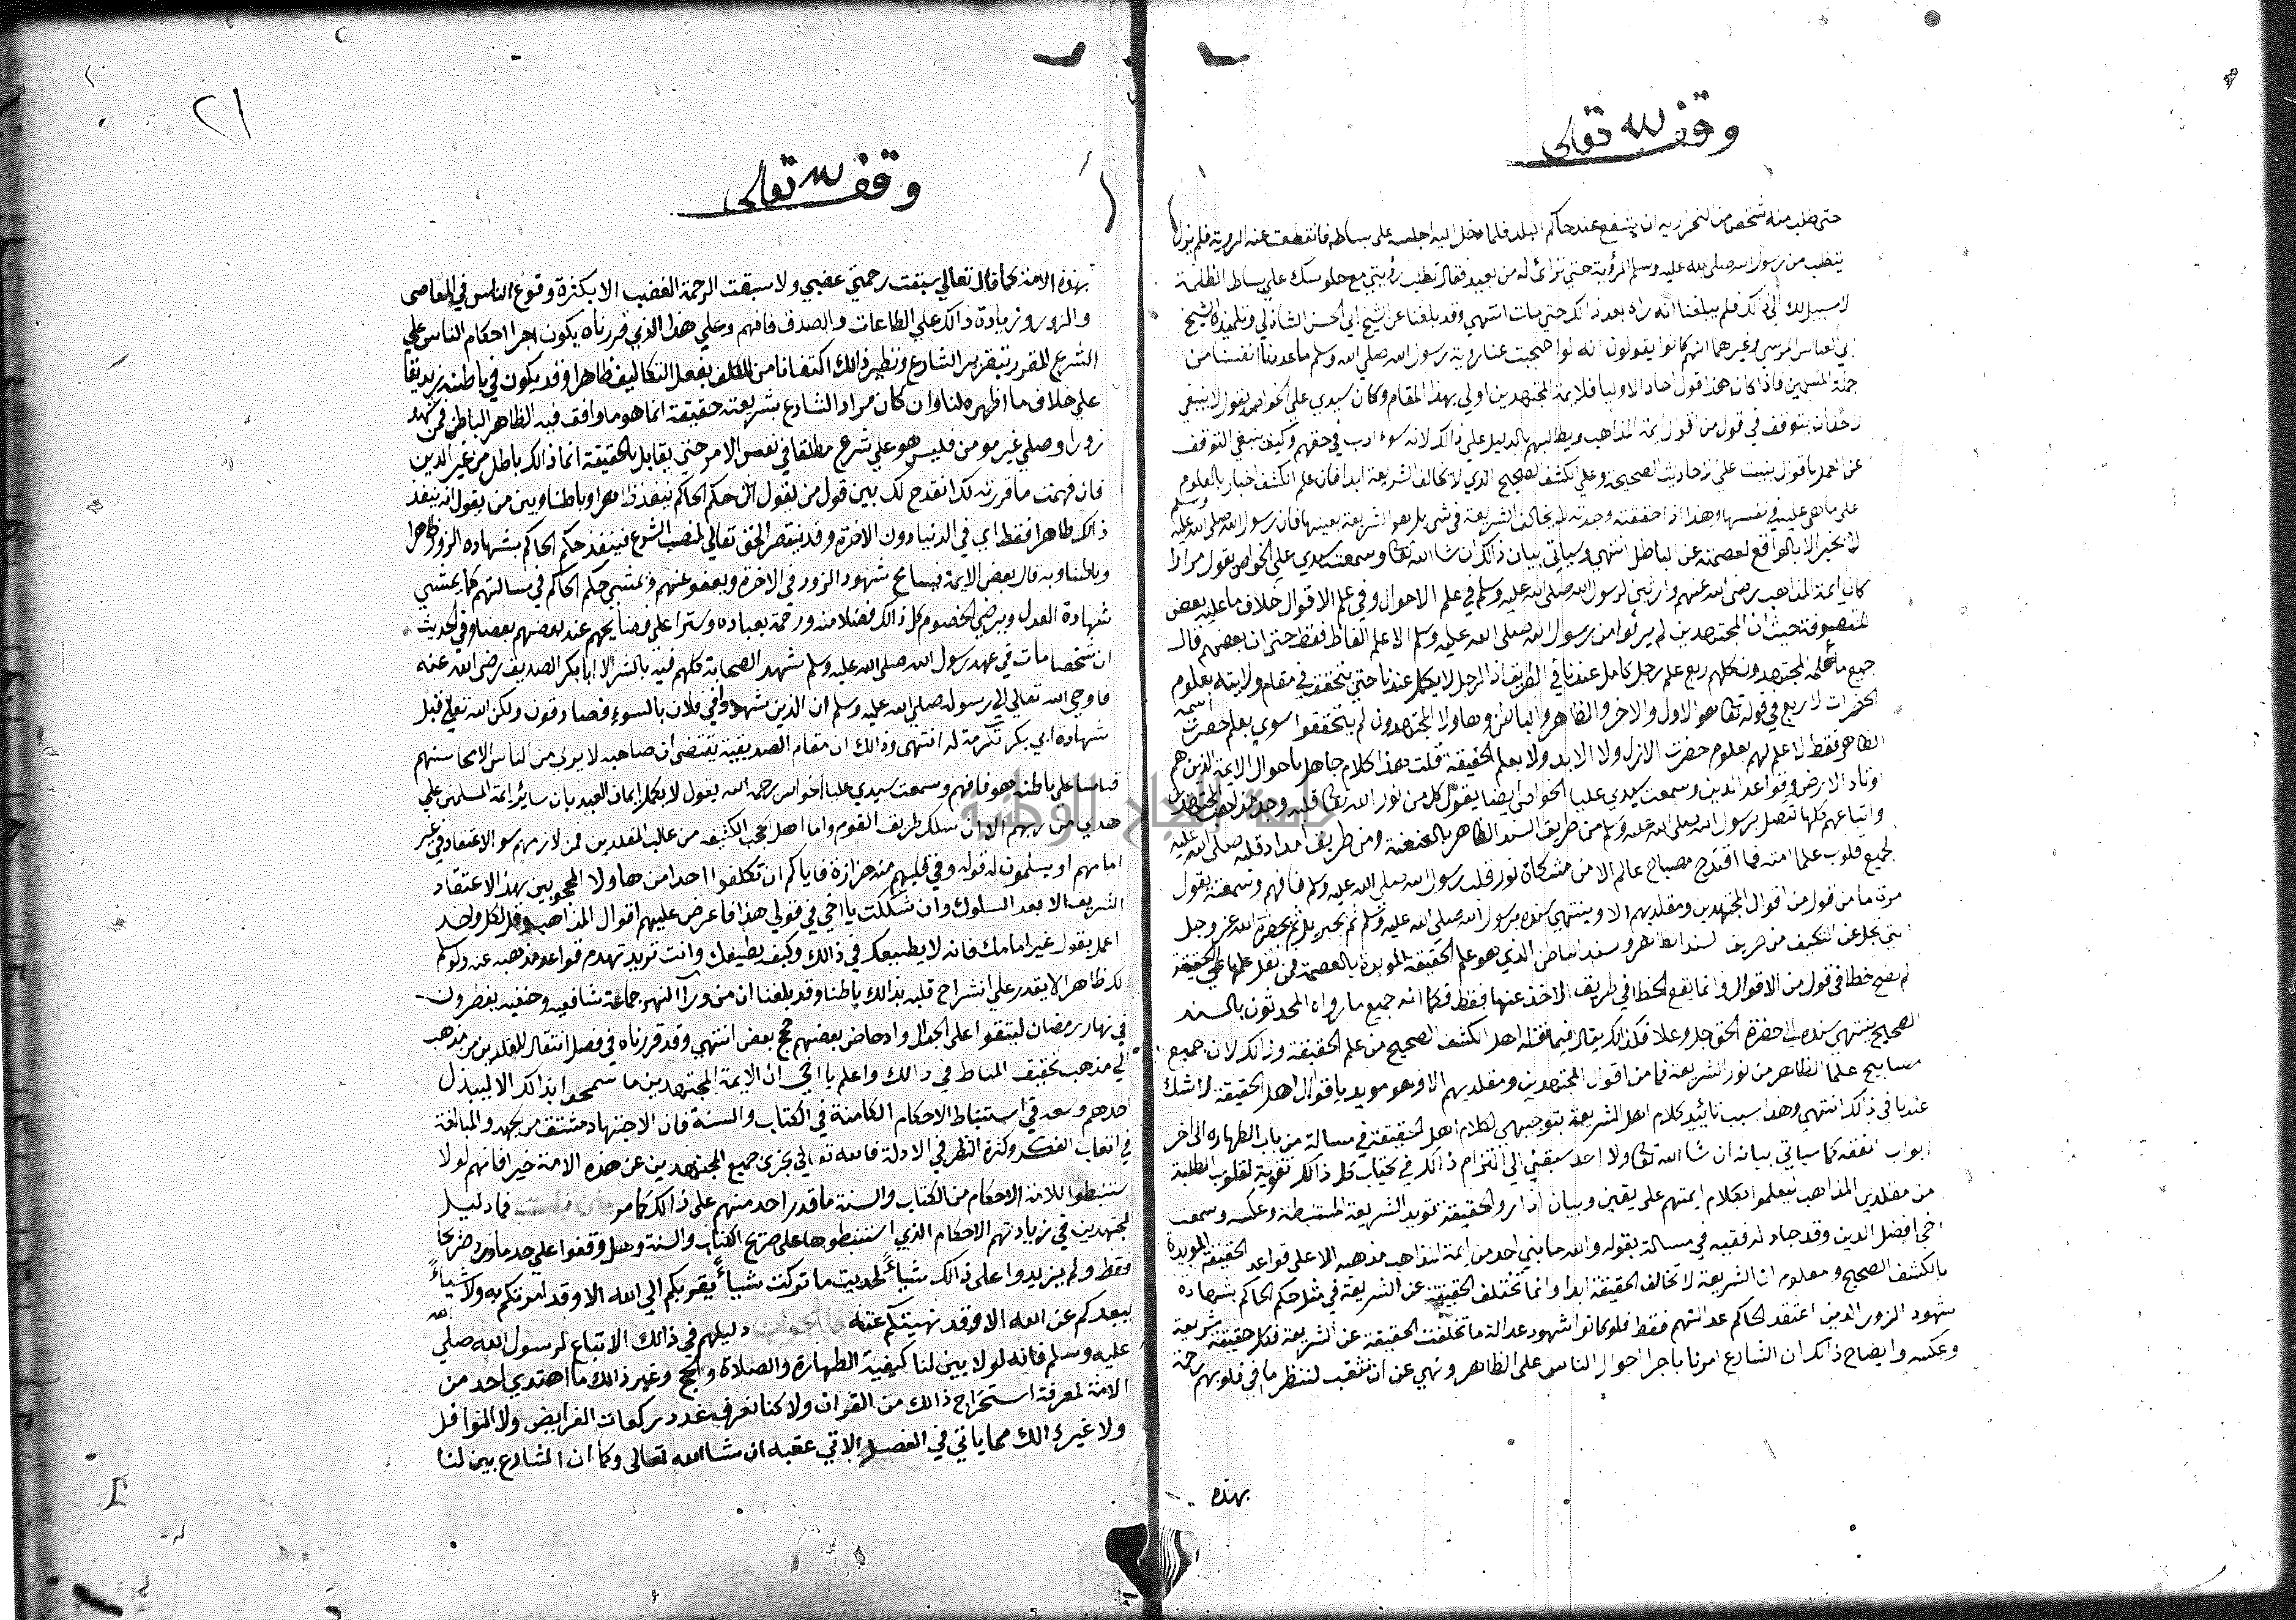 وقف لله تعالى
حتى طلب منه شخص من النحراريه ان يشفع عند حاكم البلد فلما دخل اليه اجلسه على بساطه فانقطعت عنه الروية فلم يزل
يتطلب من رسول الله صلى الله عليه وسلم الرؤية حتى ترائ له من بعيد فقال تطلب رؤيتي مع جلوسك علي بساط الظلمة
لا سبيل لك الى ذلك فلم يبلغنا انه راه بعد ذالك حتى مات انتهي وقد بلغنا عن الشيخ ابي الحسن الشاذلي وتلميذه الشيخ
ابي العباس المرسي وغيرهما انهم كانوا يقولون انه لو احتجبت عنا روية رسول الله صلى الله وسلم ما عددنا انفسنا من
جملة المسلمين فاذا كان هذا قول احاد الاوليا فلايمة المجتهدين اولى بهذا المقام وكان سيدي علي الخواص يقول لا ينبغي
لاحد ان يتوقف في قول من اقول ايمة المذاهب ويطالبهم بالدليل على ذالك لانه سوء ادب في حقهم وكيف ينبغي التوقف
عن العمل باقوال بنيت على الاحاديث الصحيحة وعلي الكشف الصحيح الذي لا يخالف الشريعة ابدا فان علم الكشف اخبار بالعلوم
على ما هي عليه في نفسها وهذا اذا حققته وجدته لا يخالف الشريعة في شي بل هو الشريعة بعينها فان رسول الله صلى الله عليه وسلم
لا يخبر الا بالواقع لعصمته عن الباطل انتهي وسياتي بيان ذالك ان شا الله تعا وسمعت سيدي علي الخواص يقول مرارا
كان ايمة المذاهب رضى الله عنهم وارثين لرسول الله صلى الله عليه وسلم في علم الاحوال وفي علم الاقوال خلاف ما عليه بعض
المتصوفة حيث ان المجتهدين لم يرثوا من رسول الله صلى الله عليه وسلم الا علم الفاظ فقط حتى ان بعضهم قال
جميع ما علمه المجتهدون كلهم ربع علم رجل كامل عندنا في الطريق اذ الرجل لا يكمل عندنا حتى يتحقق في مقام ولايته بعلوم
الحضرات الاربع في قوله تعا هو الاول والاخر والظاهر والباطن وهاولا المجتهدون لم يتحققوا سوى بعلم حضرت اسمه
الظاهر فقط لا علم لهم بعلوم حضرت الازل ولا الابد ولا بعلم الحقيقة قلت هذا كلام جاهل باحوال الايمة الذين هم
اوتاد الارض وقواعد الدين وسمعت سيدي عليا الخواص ايضا يقول كل من نور الله تعا قلبه وجد مذاهب المجتهدين
واتباعهم كلها تتصل برسول الله صلى الله عليه وسلم من طريق السند الظاهر بالعنعنة ومن طريق امداد قلبه صلى الله عليه
لجميع قلوب علما امته فما اقتدح مصباح عالم الا من مشكاة نور قلب رسول الله صلى الله عليه وسلم فافهم وسمعته يقول
مرة ما من قول من اقوال المجتهدين ومقلديهم الا وينتهي سنده برسول الله صلى الله عليه وسلم ثم بجبريل ثم بحضرة الله عز وجل
التي تجل عن التكيف من طريق السند الظاهر وسند الباطن الذي هو علم الحقيقة المويدة بالعصمة فمن نقل علمها علي الحقيقة
لم يصح خطا في قول من الاقوال وانما يقع الخطا في طريق الاخذ عنها فقط فكما انه جميع ما رواه المحدثون بالسند
الصحيح ينتهي سنده الى حضرة الحق جل وعلا فكذالك يقال فيما نقله اهل الكشف الصحيح من علم الحقيقة وذالك لان جميع
مصابيح علما الظاهر من نور الشريعة فما من اقول المجتهدين ومقلديهم الا وهو مويد باقوال اهل الحقيقة لا شك
عندنا في ذالك انتهي وهذا سبب تائيدي كلام اهل الشريعة بتوجيهي لكلام اهل الحقيقة في مسالة من باب الطهارة الى اخر
ابواب الفقه كما سياتي بيانه ان شا الله تعا ولا احد سبقني الى التزام ذالك في كتاب كل ذالك تقوية لقلوب الطلبة
من مقلدي المذاهب ليعملوا بكلام ايمتهم على يقين وبيان اذا راو الحقيقة تويد الشريعة المستنبطة وعكسه وسمعت
اخي افضل الدين وقد جادله فقيه في مسالة يقول والله ما بني احد من ايمة المذاهب مذهبه الا على قواعد الحقيقة المويدة
بالكشف الصحيح ومعلوم ان الشريعة لا تخالف الحقيقة ابدا وانما تختلف الحقيقة عن الشريعة في مثل حكم الحاكم بشهادة
شهود الزور الذين اعتقد الحاكم عدالتهم فقط فلو كانوا شهود عدالة ما تخلفت الحقيقة عن الشريعة فكل حقيقة شريعة
وعكسه وايضاح ذالك ان الشارع امرنا باجرا احوال الناس على الظاهر ونهي عن ان ننقب لننظر ما في قلوبهم رحمة
بهذه
٢١
وقف لله تعالى
بهذه الامة كما قال تعالي سبقت رحمتي غضبي ولا سبقت الرحمة الغضب الا بكثرة وقوع الناس في المعاصى
والزور وزيادة ذالك علي الطاعات والصدق فافهم وعلي هذا الذي قررناه يكون اجرا احكام الناس علي
الشرع المقرر بتقرير الشارع ونظير ذالك اكتفانا من المكلف بفعل التكاليف ظاهرا وقد يكون في باطنه زنديقا
علي خلاف ما اظهره لنا وان كان مراد الشارع بشريعته حقيقة انما هو ما وافق فيه الظاهر الباطن فمن شهد
زورا وصلي غير مومن فليس هو علي شرع مطلقا في نفس الامر حتي يقابل بالحقيقة انما ذالك باطل من غير الدين
فان فهمت ما قررته لك انقدح لك بين قول من يقول ان حكم الحاكم ينفذ ظاهرا وباطنا وبين من يقول انه ينفذ
ذالك ظاهرا فقط اي في الدنيا دون الاخرة وقد ينتصر الحق تعالي لمنصب الشرع فينفذ حكم الحاكم بشهادة الزور ظاهرا
وباطنا وبه قال بعض الايمة فيسامح شهود الزور في الاخرة ويعفو عنهم ويمشي حكم الحاكم في مسالتهم كما يمشي
شهادة العدل ويرضي الخصوم كل ذالك فضلا منه ورحمة بعباده وسترا علي فضايحهم عند بعضهم بعضا وفي الحديث
ان شخصا مات في عهد رسول الله صلى الله عليه وسلم فشهد الصحابة كلهم فيه بالشر الا ابا بكر الصديق رضى الله عنه
فاوحي الله تعالي الي رسوله صلي الله عليه وسلم ان الذين شهدوا في فلان بالسوء فصادقون ولكن الله تعالي قبل
شهادة ابي بكر تكرمة له انتهى وذالك ان مقام الصديقية يقتضى ان صاحبه لا يرى من الناس الا محاسنهم
قياسا علي باطنه هو فافهم وسمعت سيدي عليا الخواص رحمه الله يقول لا يكمل ايمان العبد بان سائر ايمة المسلمين علي
هدي من ربهم الا ان سلك طريق القوم واما اهل الحجب الكثيفه من غالب المقلدين فمن لازمهم سو الاعتقاد في غير
امامهم او يسلمون له قوله وفي قلبهم منه حزازة فاياكم ان تكلفوا احدا من هاولا المحجوبين بهذا الاعتقاد
الشريف الا بعد السلوك وان شككت يا اخي في قولي هذا فاعرض عليهم اقوال المذاهب وقل لكل واحد
اعمل بقول غير امامك فانه لا يطيعك في ذالك وكيف يطيعك وانت تريد تهدم قواعد مذهبه عنه ولو سلم
لك ظاهرا لا يقدر علي انشراح قلبه بذالك باطنا وقد بلغنا ان من ورآ النهر جماعة شافعيه وحنفيه يفطرون
في نهار رمضان ليتقوا على الجدال وادحاض بعضهم حجج بعض انتهي وقد قررناه في فصل انتقال المقلدين من مذهب
الي مذهب تحقيق المناط في ذالك واعلم يا اخي ان الايمة المجتهدين ما سمحوا بذالك الا لبذل
احدهم وسعه في استنباط الاحكام الكامنة في الكتاب والسنة فان الاجتهاد مشتق من الجهد والمبالغة
في اتعاب الفكر وكثرة النظر في الادلة فالله تعالي يجزي جميع المجتهدين عن هذه الامة خيرا فانهم لولا
استنبطوا للامة الاحكام من الكتاب والسنة ما قدر احد منهم على ذالك كما مر فان قلت فما دليل
المجتهدين في زيادتهم الاحكام الذي استنبطوها على صريح الكتاب والسنة وهل وقفوا علي حد ما ورد صريحا
فقط ولم يزيدوا على ذالك شياءً لحديث ما تركت شياءً يقربكم الي الله الا وقد امرتكم به ولا شياءً
يبعدكم عن الله الا وقد نهيتكم عنه فالجواب دليلهم في ذالك الاتباع لرسول الله صلي الله
عليه وسلم فانه لولا بين لنا كيفية الطهارة والصلاة والحج وغير ذالك ما اهتدي احد من
الامة لمعرفة استخراج ذالك من القران ولا كنا نعرف عدد ركعات الفرايض ولا النوافل
ولا غير ذالك مما ياتي في الفصل الاتي عقبه ان شا الله تعالى وكما ان الشارع بين لنا
جامعة النجاح الوطنية